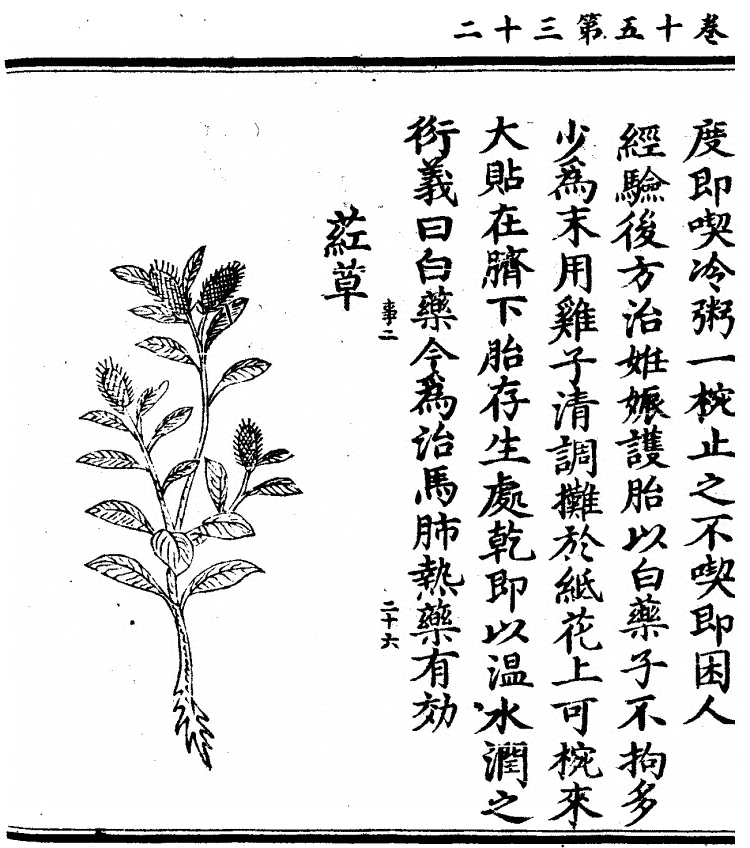 卷十五第三十二
度即喫冷粥一椀止之不喫即困人
經驗後方治姙娠護胎以白藥子不拘多
少為末用雞子清調攤於紙花上可椀來
大貼在臍下胎存生處乾即以温水潤之
衍義曰白藥今為治馬肺熱藥有効
事二
二十六
葒草